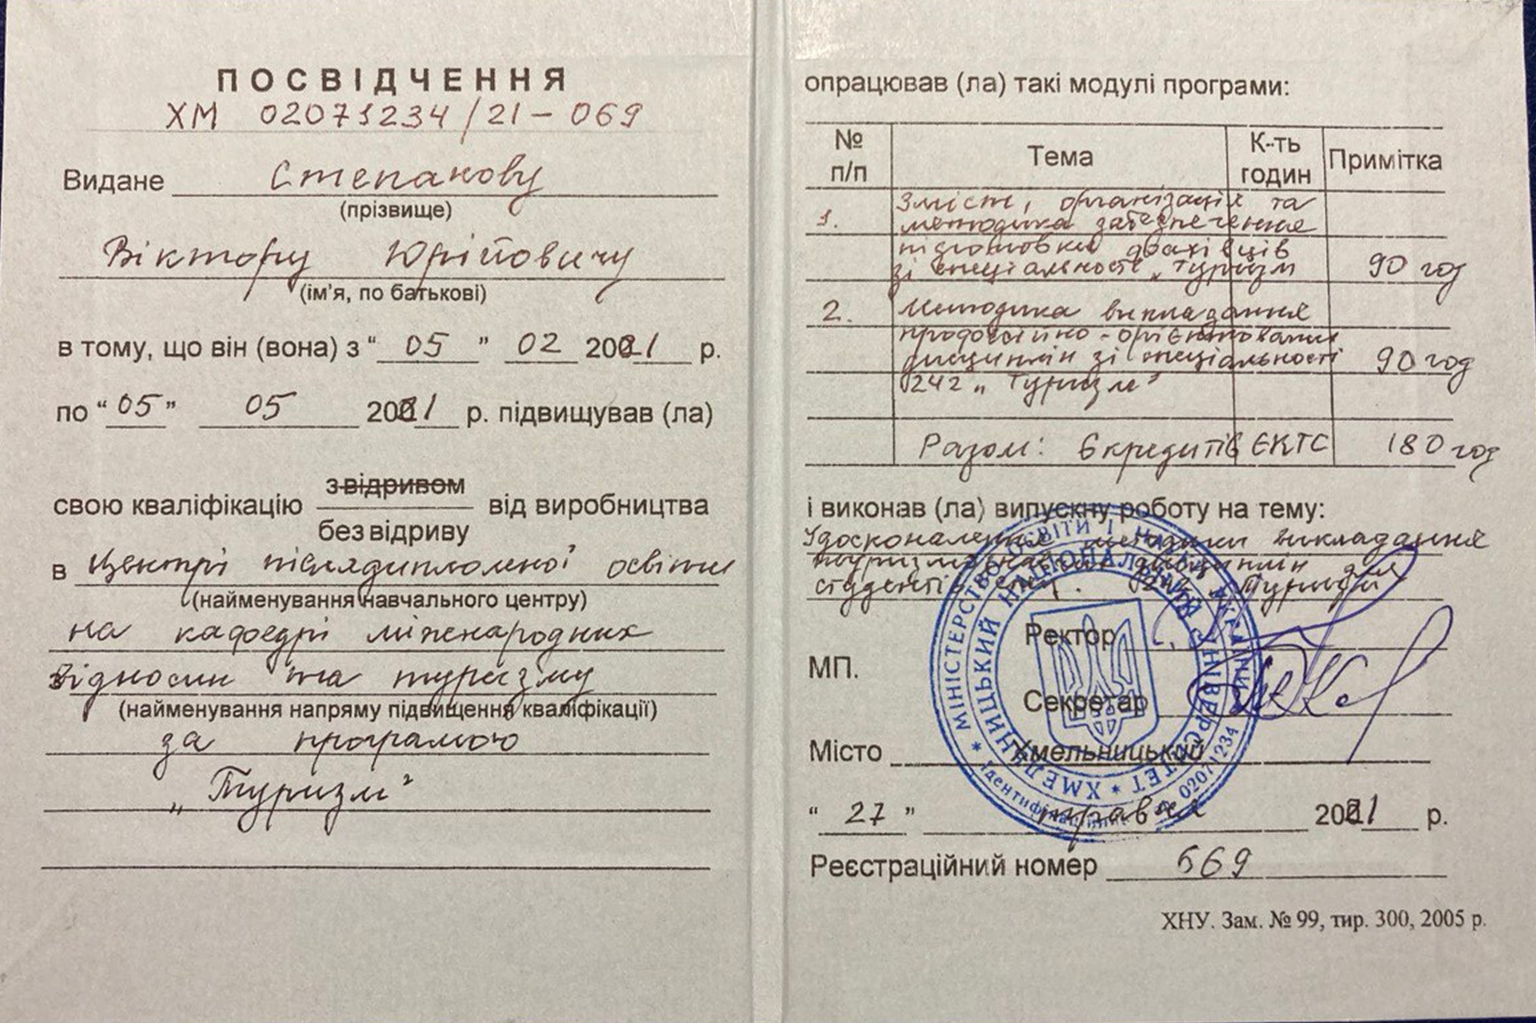 ПОСВІДЧЕННЯ
ХМ 02071234/21-069
Видане Степанову
(прізвище)
Віктору Юрійовичу
(ім'я, по батькові)
в тому, що він (вона) з “ 05 ” 02 2021 р.
по “ 05 ” 05 2021 р. підвищував (ла)
свою кваліфікацію з відривом від виробництва
без відриву
в Центрі післядипломної освіти
(найменування навчального центру)
на кафедрі міжнародних
відносин та туризму
(найменування напряму підвищення кваліфікації)
за програмою
„Туризм”
опрацював (ла) такі модулі програми:
№ п/п Тема К-ть годин Примітка
1. Зміст, організація та
методика забезпечення
підготовки фахівців
зі спеціальності „Туризм 90 год
2. Методика викладання
професійно-орієнтованих
дисциплін зі спеціальності 90 год
242 „Туризм”
Разом: 6 кредитів ЄКТС 180 год
і виконав (ла) випускну роботу на тему:
Удосконалення методики викладання
дисциплін для
студентів спец. 242 „Туризм”
Ректор
МП.
Секретар
Місто Хмельницький
“ 27 ” травня 2021 р.
Реєстраційний номер 669
ХНУ. Зам. № 99, тир. 300, 2005 р.
МІНІСТЕРСТВО ОСВІТИ І НАУКИ УКРАЇНИ
ХМЕЛЬНИЦЬКИЙ НАЦІОНАЛЬНИЙ УНІВЕРСИТЕТ
02071234